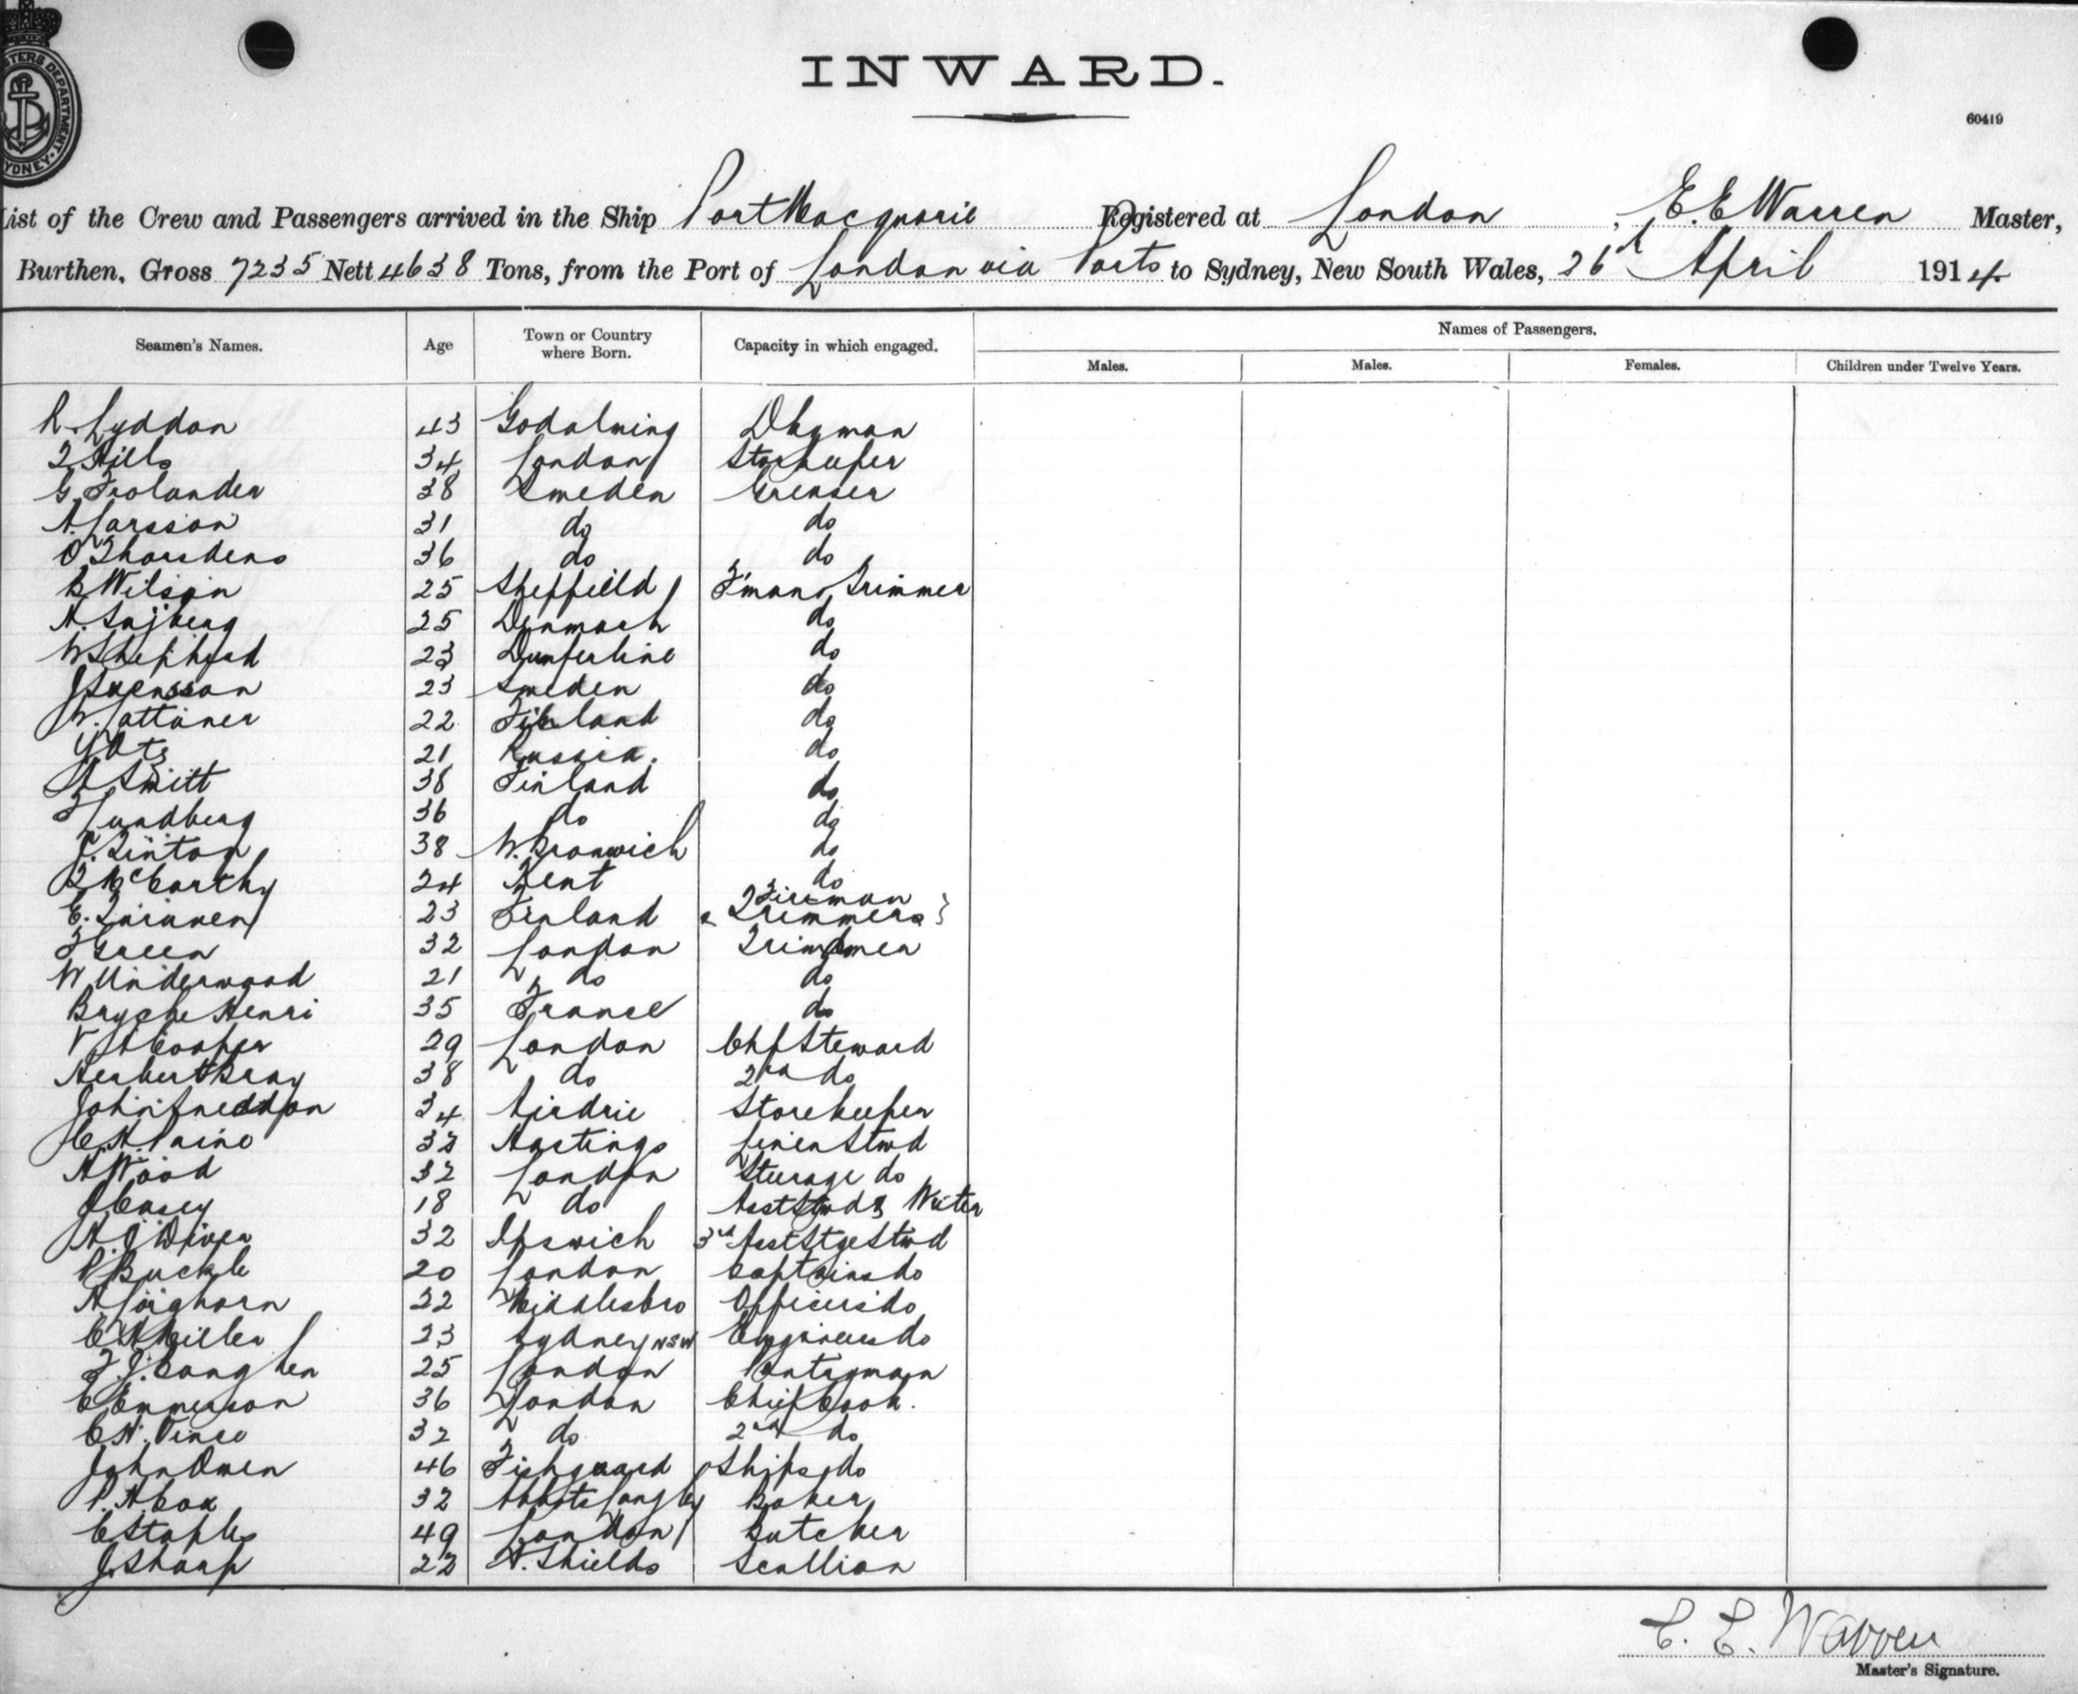 INWARD.
60419
List of the Crew and Passengers arrived in the Ship Port Macquarie Registered at London, E. E. Warren Master,
Burthen, Gross 7235 Nett 4638 Tons, from the Port of London via Ports to Sydney, New South Wales, 26th April 1914.
Seamen's Names. Age Town or Country where Born. Capacity in which engaged. Names of Passengers.
Males. Males. Females. Children under Twelve Years.
R. Lyddon 43 Godalming Dkyman
T Hills 34 London Storekeeper
G. Frolander 38 Sweden Greaser
A. Larsson 31 do do
O Thorsdens 36 do do
B Wilson 25 Sheffield F'man & Trimmer
A. 25 Denmark do
W Shepherd 23 Dunferline do
J Svensson 23 Sweden do
W. 22 Finland do
Y Ots 21 Russia. do
A Smitt 38 Finland do
F Lundberg 36 do do
C. Linton 38 W. Bromwich do
D McCarthy 24 Kent do
E. 23 Finland 2 Fireman & Trimmers }
F Green 32 London Trimmer
W Underwood 21 do do
Bryche Henri 35 France do
V St Cooper 29 London Chf Steward
Herbert Bray 38 do 2nd do
John Sneddon 34 Airdrie Storekeeper
C. H. Paine 32 Hastings Linen Stwd
A Wood 32 London Steerage do
J Casey 18 do Asst Stwd & Writer
A. J. Driver 32 Ipswich 3rd Asst Stge Stwd
P Buckle 20 London Captains do
A. Leighorn 22 Middlesbro Officers do
C. A Miller 23 Sydney NSW Engineers do
F. J. Coughlen 25 London Pantryman
C Emmerson 36 London Chief Cook.
C. H. Vince 32 do 2nd do
John Owen 46 Fishguard Ships do
P. A Cox 32 Abbots Langley Baker
C Staples 49 London Butcher
J. Sharp 22 N. Shields Scullion
E. E. Warren
Master's Signature.